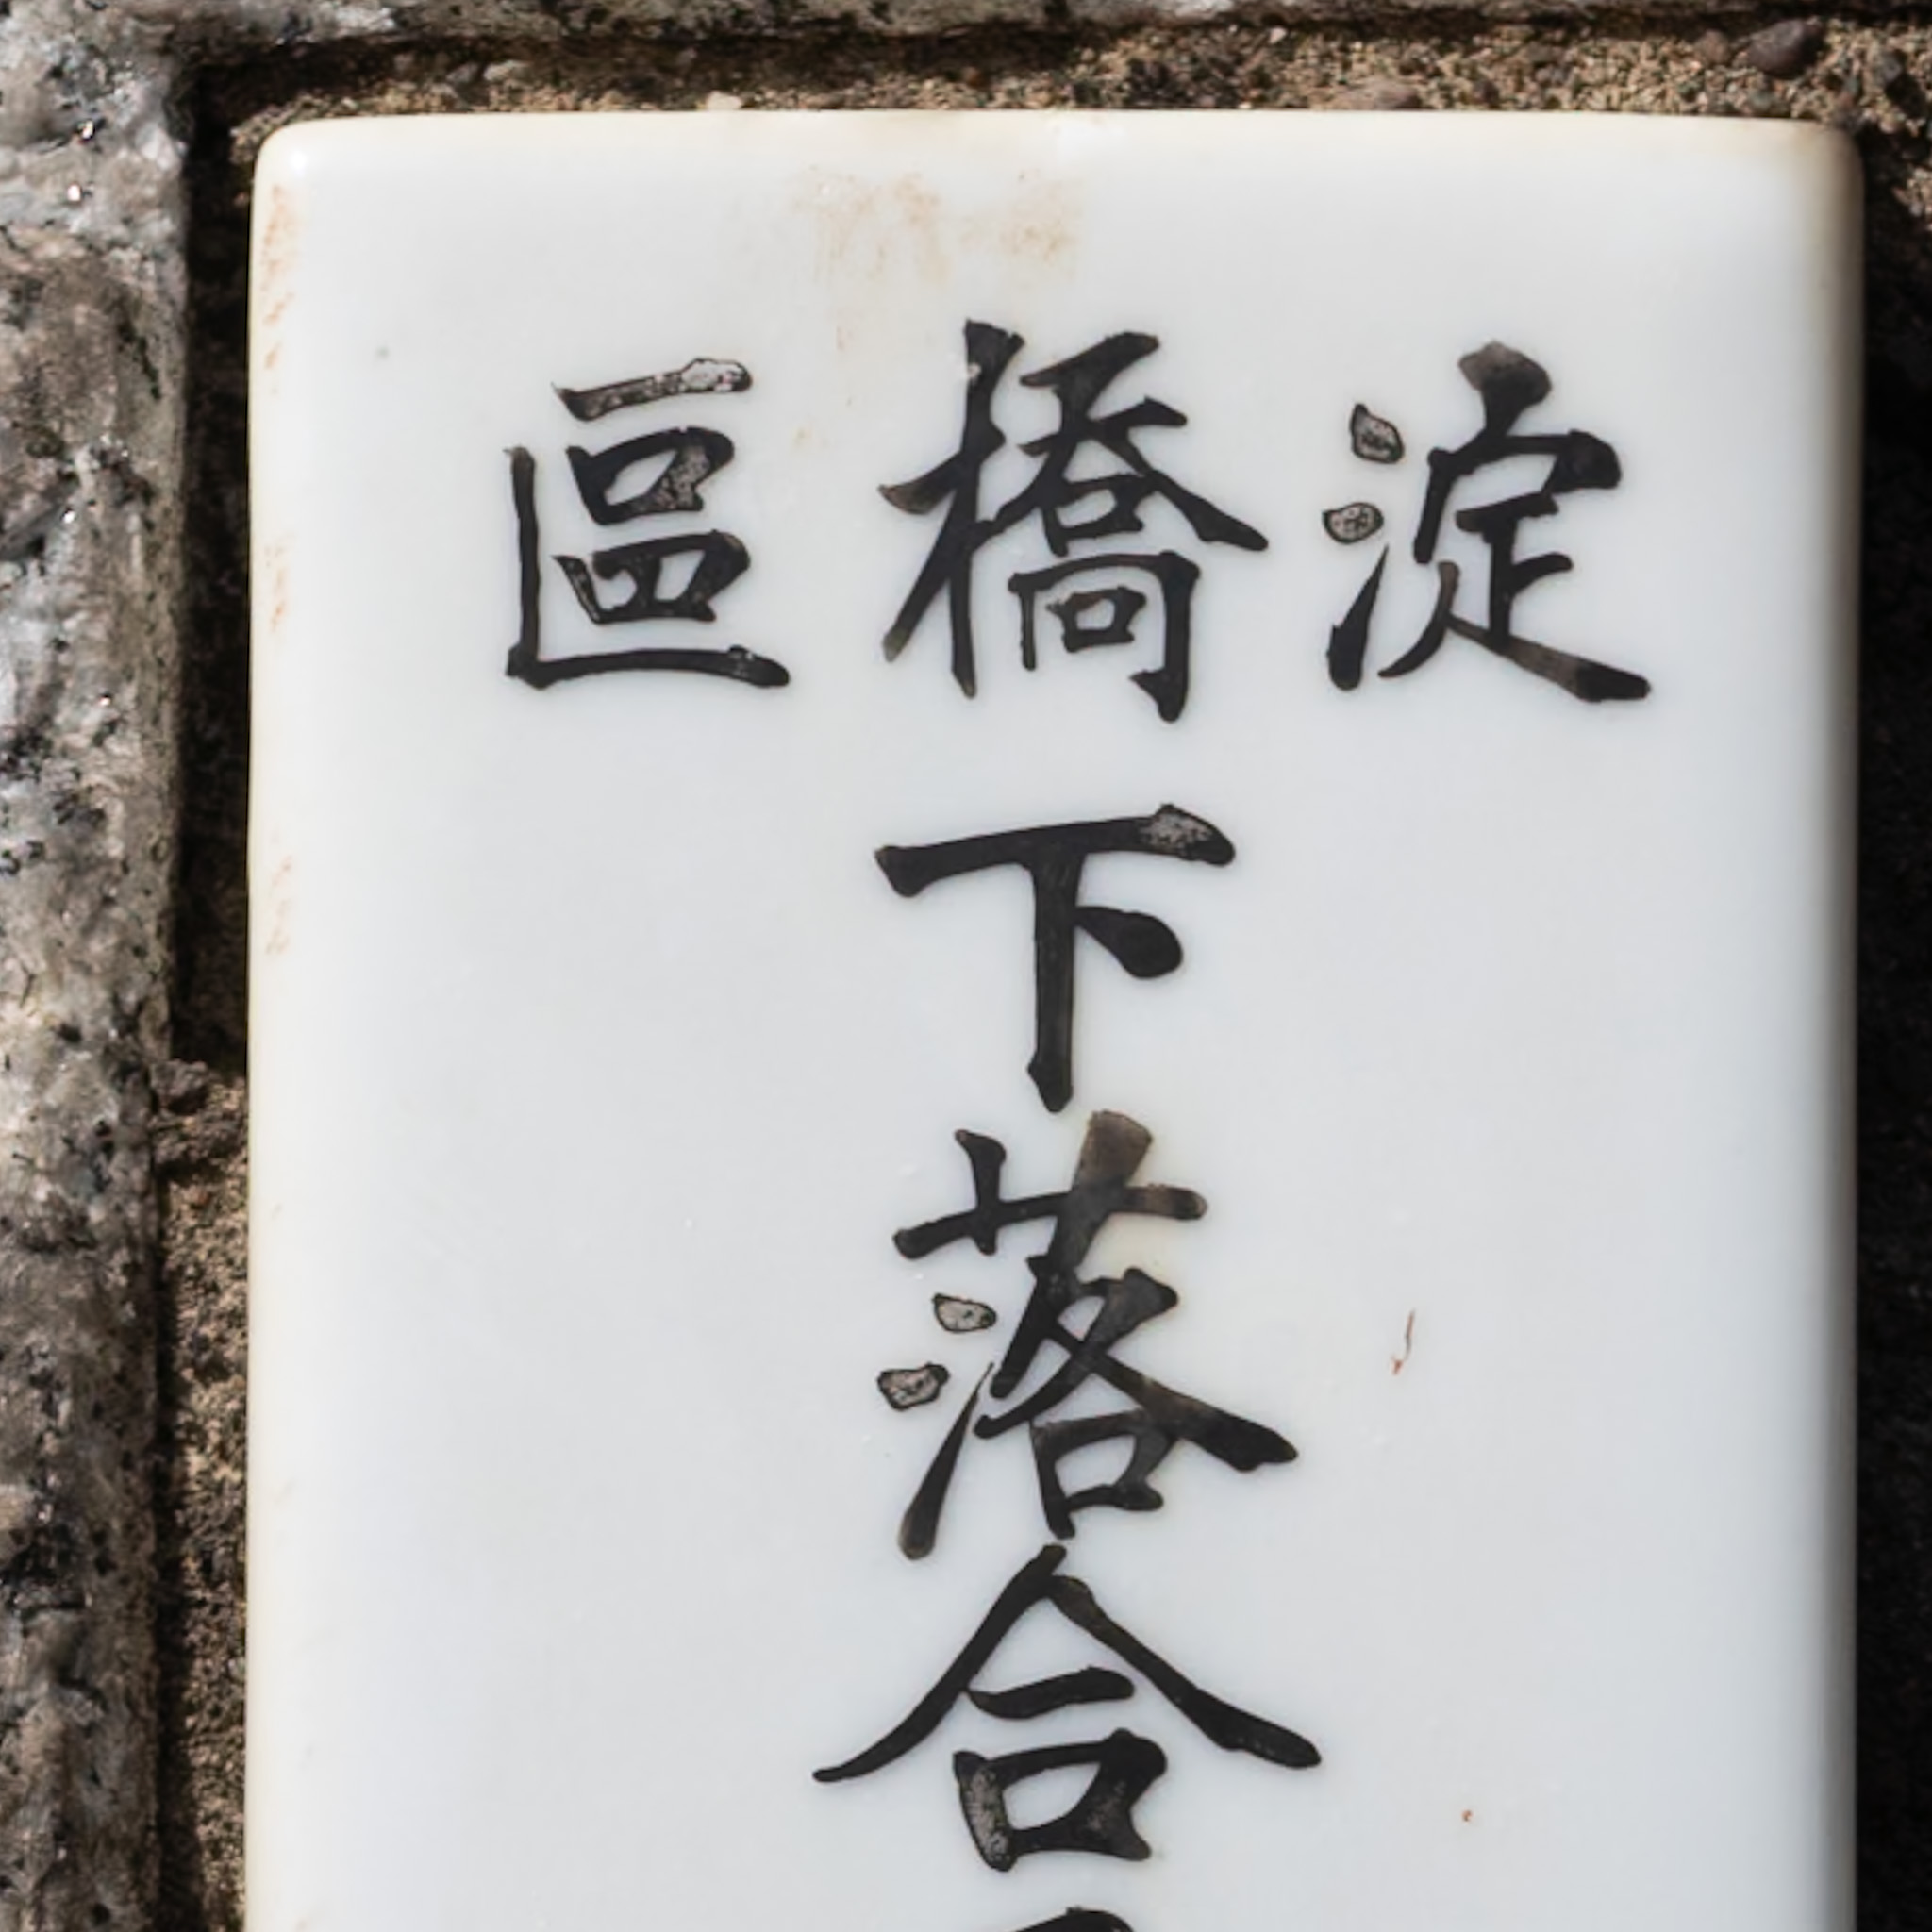 淀橋區
下落合